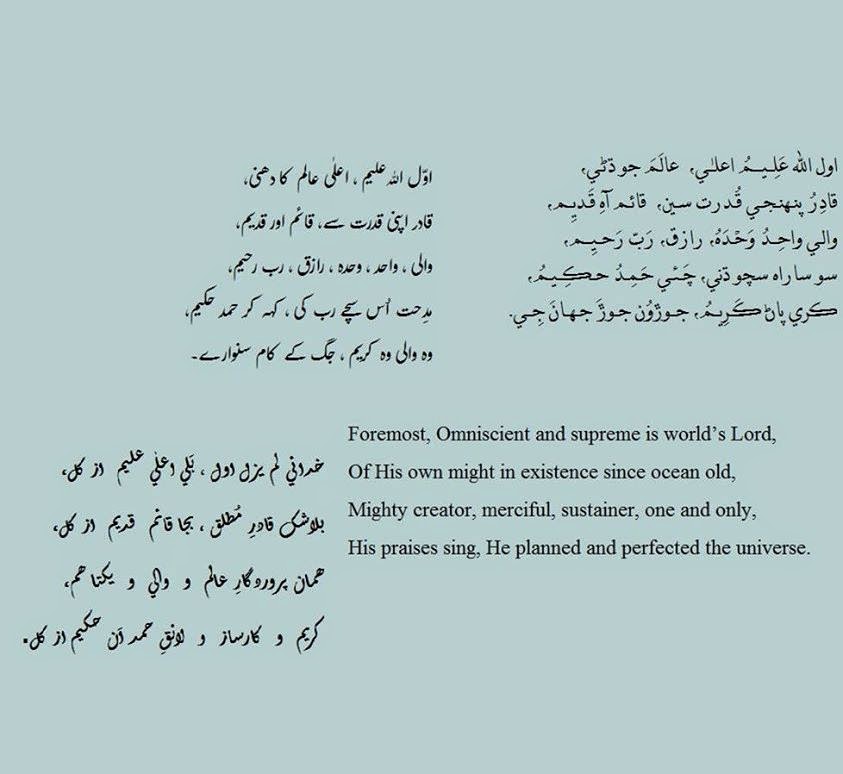 اول الله عَلِيمُ اعليٰ، عالَمَ جو ڌڻي،
قادِرُ پنهنجي قُدرت سين، قائم آهِ قَديِم،
والي واحِدُ وَحْدَهُ، رازق، رَبّ رَحيِم،
سو ساراه سچو ڌڻي، چَئِي حَمِدُ حڪِيمُ،
ڪري پاڻ ڪَرِيمُ، جوڙؤن جوڙَ جهانَ جِي.
اوّل اللہ علیم ، اعلٰی عالم کا دھنی،
قادر اپنی قدرت سے، قائم اور قدیم،
والی ، واحد ، وحدہ ، رازق ، رب رحیم،
مِدحت اُس سچے رب کی ، کہہ کر حمد حکیم،
وہ والی وہ کریم ، جگ کے کام سنوارے۔
Foremost, Omniscient and supreme is world’s Lord,
Of His own might in existence since ocean old,
Mighty creator, merciful, sustainer, one and only,
His praises sing, He planned and perfected the universe.
خدائي لم يزل اول ، بَلي اعليٰ عليم از کل،
بلاشک قادرِ مُطلق ، بجا قائم قديم از کل،
همان پروردگارِ عالم و والي و يکتا هم،
کريم و کارساز و لائقِ حمد آن حکيم از کل.